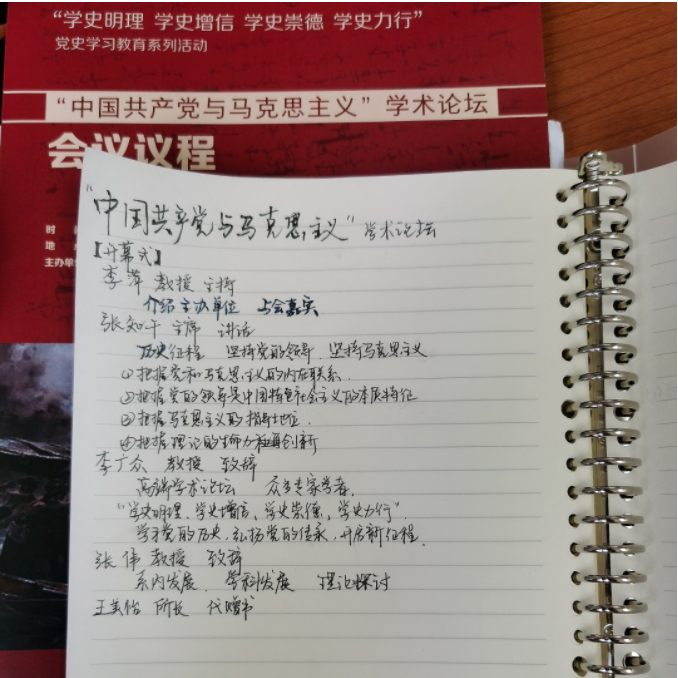 “学史明理 学史增信 学史崇德 学史力行”
党史学习教育系列活动
“中国共产党与马克思主义”学术论坛
会议议程
时
地
主办单
“中国共产党与马克思主义”学术论坛
【开幕式】
李萍 教授 主持
介绍主办单位 与会嘉宾
张知干 主席 讲话
历史征程 坚持党的领导 坚持马克思主义
①把握党和马克思主义的内在联系.
②把握党的领导是中国特色社会主义的本质特征
③把握马克思主义的指导地位.
④把握理论的生命力在于创新
李广众 教授 致辞
高端学术论坛 众多专家学者.
“学史明理、学史增信、学史崇德、学史力行”.
学习党的历史、弘扬党的传承、开启新征程.
张伟 教授 致辞
系内发展. 学科发展 理论探讨
王美怡 所长 代赠书